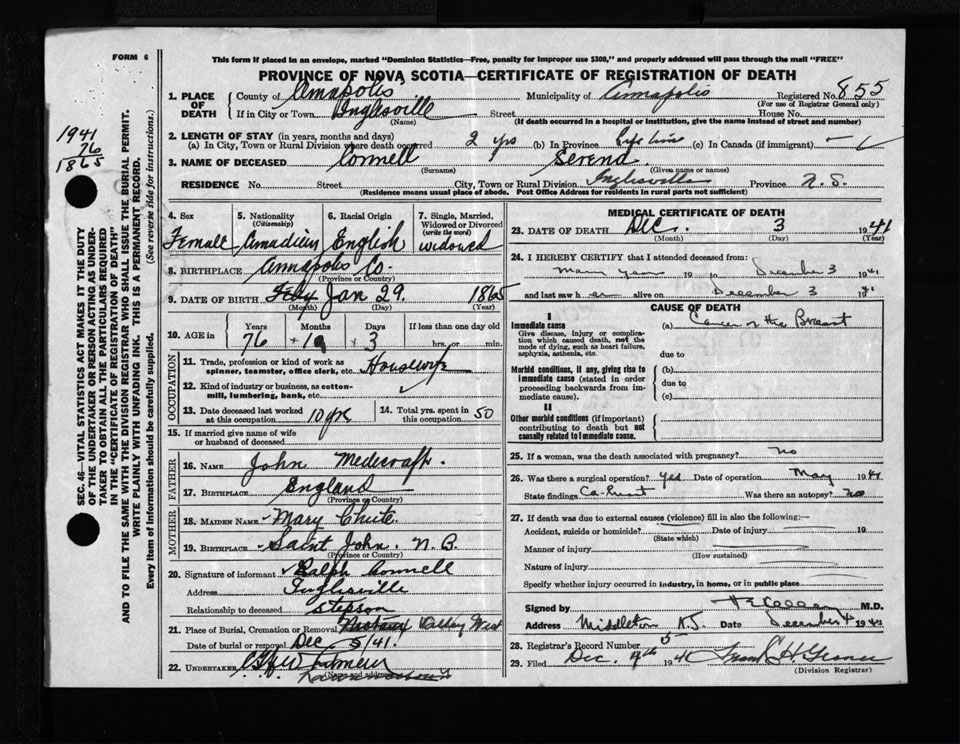 FORM 6
This form if placed in an envelope, marked "Dominion Statistics—Free, penalty for improper use $300," and properly addressed will pass through the mail "FREE"
PROVINCE OF NOVA SCOTIA—CERTIFICATE OF REGISTRATION OF DEATH
1. PLACE OF DEATH
County of Annapolis Municipality of Annapolis Registered No. 855
(For use of Registrar General only)
If in City or Town Inglisville Street House No.
(Name) (If death occurred in a hospital or institution, give the name instead of street and number)
2. LENGTH OF STAY (in years, months and days)
(a) In City, Town or Rural Division where death occurred 2 yrs (b) In Province Life time (c) In Canada (if immigrant) —
3. NAME OF DECEASED Connell Serend
(Surname) (Given name or names)
RESIDENCE No. Street City, Town or Rural Division Inglisville Province N.S.
(Residence means usual place of abode. Post Office Address for residents in rural parts not sufficient)
1941
76
1865
SEC. 46—VITAL STATISTICS ACT MAKES IT THE DUTY
OF THE UNDERTAKER OR PERSON ACTING AS UNDER-
TAKER TO OBTAIN ALL THE PARTICULARS REQUIRED
IN THE "CERTIFICATE OF REGISTRATION OF DEATH"
AND TO FILE THE SAME WITH THE DIVISION REGISTRAR WHO SHALL ISSUE THE BURIAL PERMIT.
WRITE PLAINLY WITH UNFADING INK. THIS IS A PERMANENT RECORD.
Every item of information should be carefully supplied. (See reverse side for instructions.)
4. Sex 5. Nationality (Citizenship) 6. Racial Origin 7. Single, Married, Widowed or Divorced (write the word)
Female Canadian English widowed
8. BIRTHPLACE Annapolis Co.
(Province or Country)
9. DATE OF BIRTH Jan 29. 1865
(Month) (Day) (Year)
10. AGE in Years Months Days If less than one day old
76 3 hrs. or min.
OCCUPATION
11. Trade, profession or kind of work as spinner, teamster, office clerk, etc. Housewife
12. Kind of industry or business, as cotton-mill, lumbering, bank, etc. ✓
13. Date deceased last worked at this occupation 10 yrs 14. Total yrs. spent in this occupation 50
15. If married give name of wife or husband of deceased
FATHER
16. NAME John Medicraft
17. BIRTHPLACE England
(Province or Country)
MOTHER
18. MAIDEN NAME Mary Chute
19. BIRTHPLACE Saint John. N.B.
(Province or Country)
20. Signature of informant Ralph Connell
Address Inglisville
Relationship to deceased Stepson
21. Place of Burial, Cremation or Removal Dalhay West
Date of burial or removal Dec. 5/41.
22. UNDERTAKER
(Name and address)
MEDICAL CERTIFICATE OF DEATH
23. DATE OF DEATH Dec. 3 1941
(Month) (Day) (Year)
24. I HEREBY CERTIFY that I attended deceased from:
many years 19 to December 3 1941
and last saw her alive on December 3 1941
CAUSE OF DEATH
I
Immediate cause (a) Cancer of the Breast
Give disease, injury or complication which caused death, not the mode of dying, such as heart failure, asphyxia, asthenia, etc.
due to
Morbid conditions, if any, giving rise to immediate cause (stated in order proceeding backwards from immediate cause).
(b)
due to
(c)
II
Other morbid conditions (if important) contributing to death but not causally related to immediate cause.
25. If a woman, was the death associated with pregnancy? no
26. Was there a surgical operation? Yes Date of operation May 1941
State findings Ca-breast Was there an autopsy? No
27. If death was due to external causes (violence) fill in also the following:—
Accident, suicide or homicide? Date of injury 19
(State which)
Manner of injury
(How sustained)
Nature of injury
Specify whether injury occurred in industry, in home, or in public place
Signed by M.D.
Address Middleton N.S. Date December 4 1941
28. Registrar's Record Number 5
29. Filed Dec. 4th 1941
(Division Registrar)